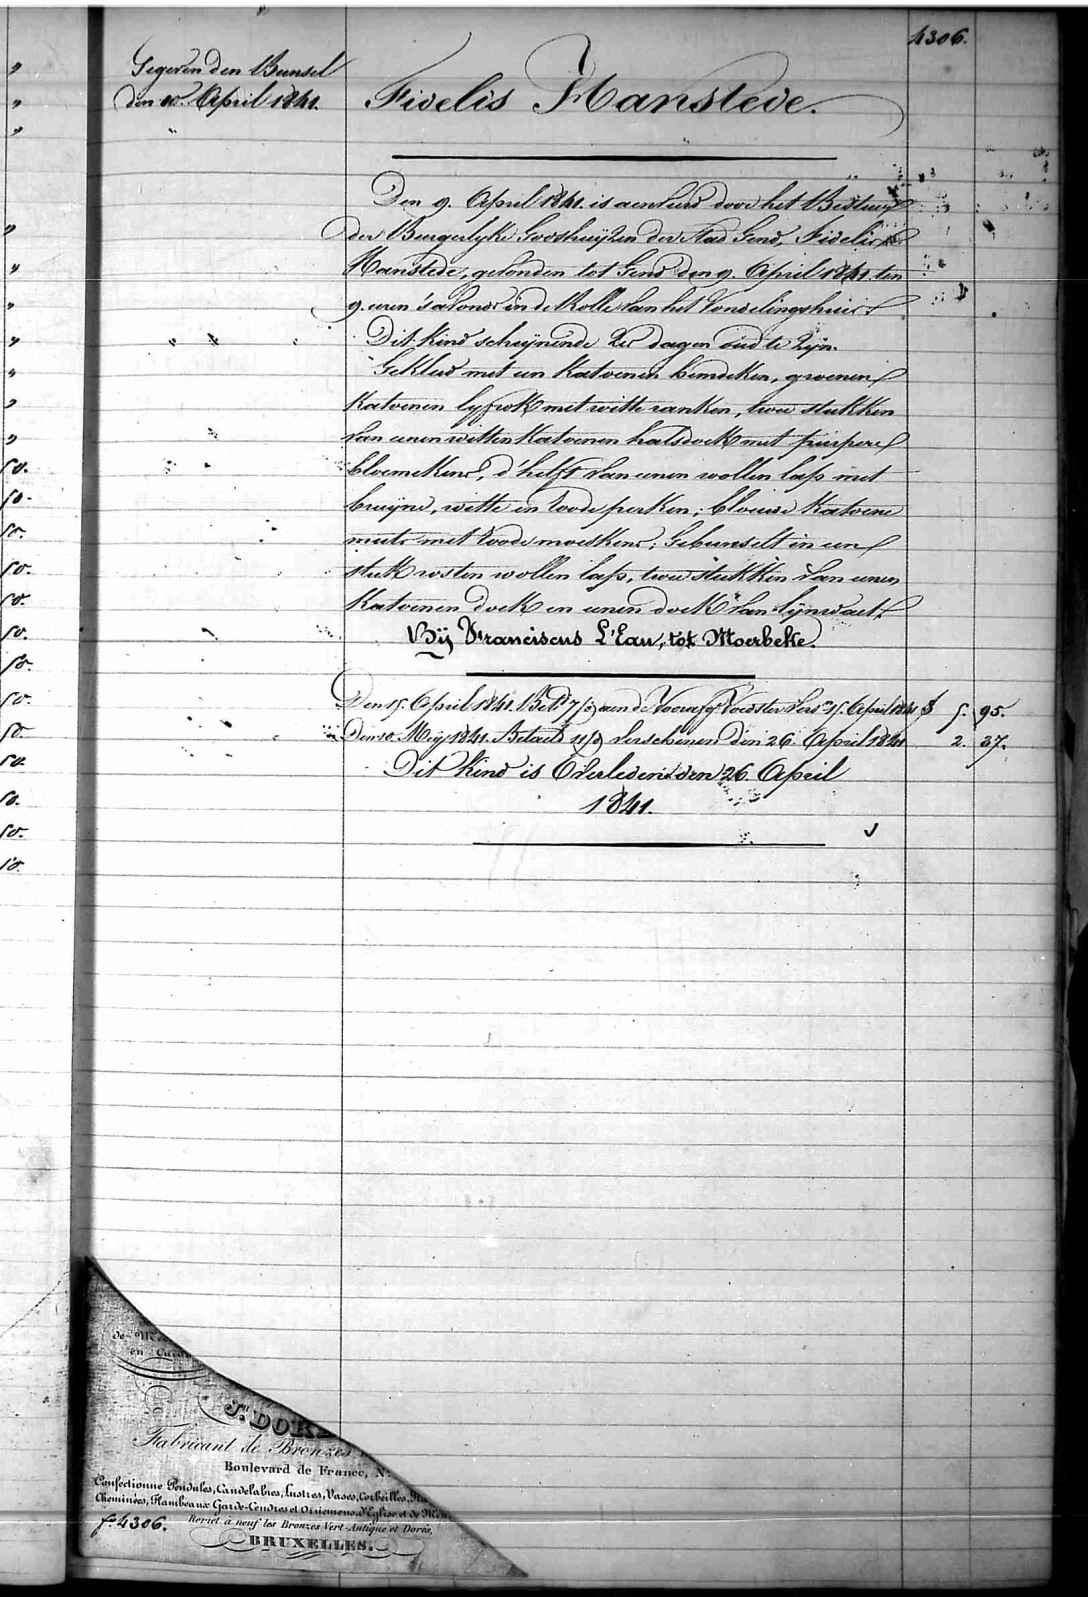 4306.
Gegeven den Bunsel
den 10. April 1841.
Fidelis Hanstede.
Den 9. April 1841. is aenveird door het Bestuer
der Burgerlyke Godshuijzen der Stad Gend, Fidelis
Hanstede, gevonden tot Gend den 9. April 1841. ten
9. uren s'avonds in de Rolle van het Vondelingshuis.
Dit kind scheynende zes dagen oud te zyn.
Gekleed met een katoenen hemdeken, groenen
katoenen lyfrok met witte ranken, twee stukken
van eenen witten katoenen halsdoek met purpere
bloemekens, d'helft van eenen wollen lap met
bruyne, witte en roode perken; blouwe katoene
muts met roode moeskens; Gebunselt in een
stuk rosten wollen lap, twee stukken van eenen
katoenen doek en eenen doek van lijnwaet.
Bij Franciscus L'Eau, tot Moerbeke.
Den 15. April 1841. Betd. aen de Voedster 15. April 1841 5. 95.
Den 10. Mey 1841. Betaeld verschenen den 26. April 1841 2. 37.
Dit kind is Overleden den 26. April
1841.
50.
50.
50.
50.
50.
50.
50.
50.
50.
50.
50.
50.
50.
en
Jh. DOR
Fabricant de Bronzes
Boulevard de France, N.
Confectionne Pendules, Candelabres, Lustres, Vases, Corbeilles,
Cheminées, Flambeaux Garde-Cendres et Ornemens d'Eglise et de
fo. 4306.
Remet à neuf les Bronzes Vert-Antique et Dorés,
BRUXELLES.